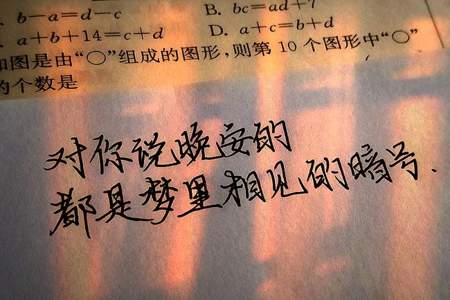 b－a＝d－c B. bc＝ad＋7
a＋b＋14＝c＋d D. a＋c＝b＋d
图是由“○”组成的图形，则第 10 个图形中“○”
个数是
对你说晚安的
都是梦里相见的暗号.